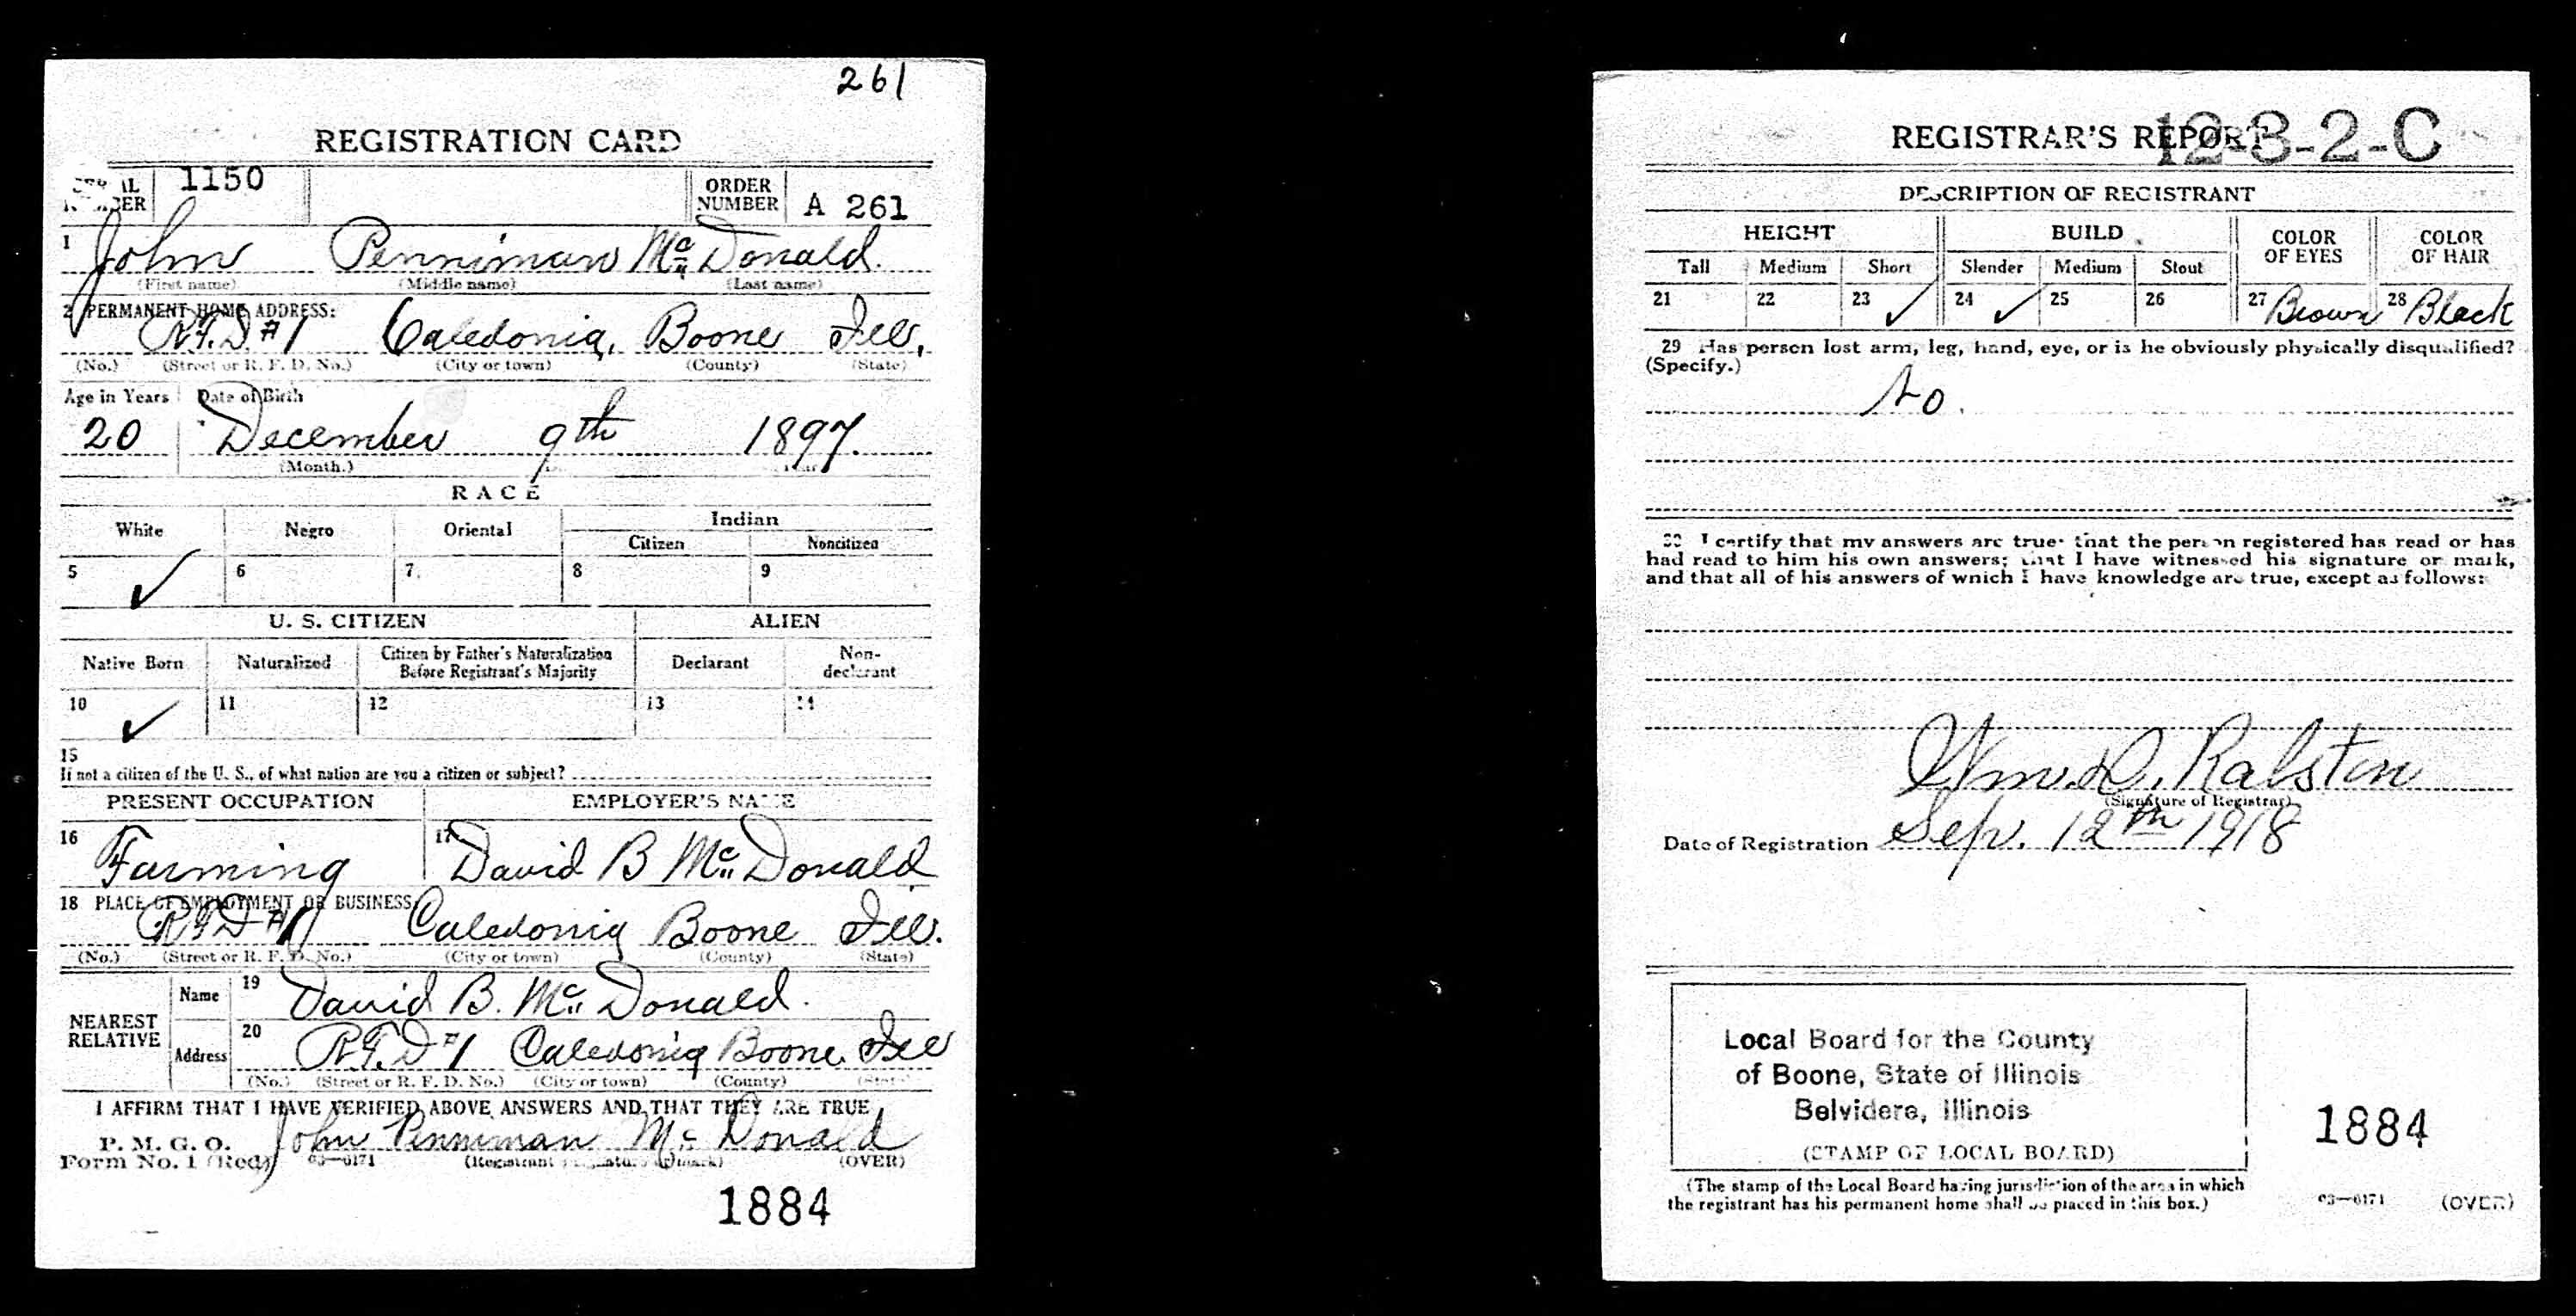 261
REGISTRATION CARD
1150 ORDER NUMBER A 261
1 John Penniman Mc Donald.
(First name) (Middle name) (Last name)
2 PERMANENT HOME ADDRESS:
R.F.D. #1 Caledonia, Boone Ill.
(No.) (Street or R. F. D. No.) (City or town) (County) (State)
Age in Years Date of Birth
20 December 9th 1897.
(Month.)
RACE
White Negro Oriental Indian
Citizen Noncitizen
5 ✓ 6 7 8 9
U. S. CITIZEN ALIEN
Native Born Naturalized Citizen by Father's Naturalization Before Registrant's Majority Declarant Non-declarant
10 ✓ 11 12 13 14
15
If not a citizen of the U. S., of what nation are you a citizen or subject?
PRESENT OCCUPATION EMPLOYER'S NAME
16 Farming 17 David B McDonald
18 PLACE OF EMPLOYMENT OR BUSINESS:
R.F.D #1 Caledonia Boone Ill.
(No.) (Street or R. F. D. No.) (City or town) (County) (State)
NEAREST RELATIVE
Name 19 David B. Mc Donald.
Address 20 R.F.D #1 Caledonia Boone Ill
(No.) (Street or R. F. D. No.) (City or town) (County) (State)
I AFFIRM THAT I HAVE VERIFIED ABOVE ANSWERS AND THAT THEY ARE TRUE
P. M. G. O.
Form No. 1 (Red) 03—6171 John Penniman Mc Donald
(Registrant's signature or mark) (OVER)
1884
REGISTRAR'S REPORT
12-3-2-C
DESCRIPTION OF REGISTRANT
HEIGHT BUILD COLOR OF EYES COLOR OF HAIR
Tall Medium Short Slender Medium Stout
21 22 23 ✓ 24 ✓ 25 26 27 Brown 28 Black
29 Has person lost arm, leg, hand, eye, or is he obviously physically disqualified?
(Specify.)
No.
30 I certify that my answers are true; that the person registered has read or has
had read to him his own answers; that I have witnessed his signature or mark,
and that all of his answers of which I have knowledge are true, except as follows:
Ralston
(Signature of Registrar)
Date of Registration Sep. 12th 1918
Local Board for the County
of Boone, State of Illinois
Belvidere, Illinois
(STAMP OF LOCAL BOARD)
1884
(The stamp of the Local Board having jurisdiction of the area in which
the registrant has his permanent home shall be placed in this box.)
03—6171 (OVER)